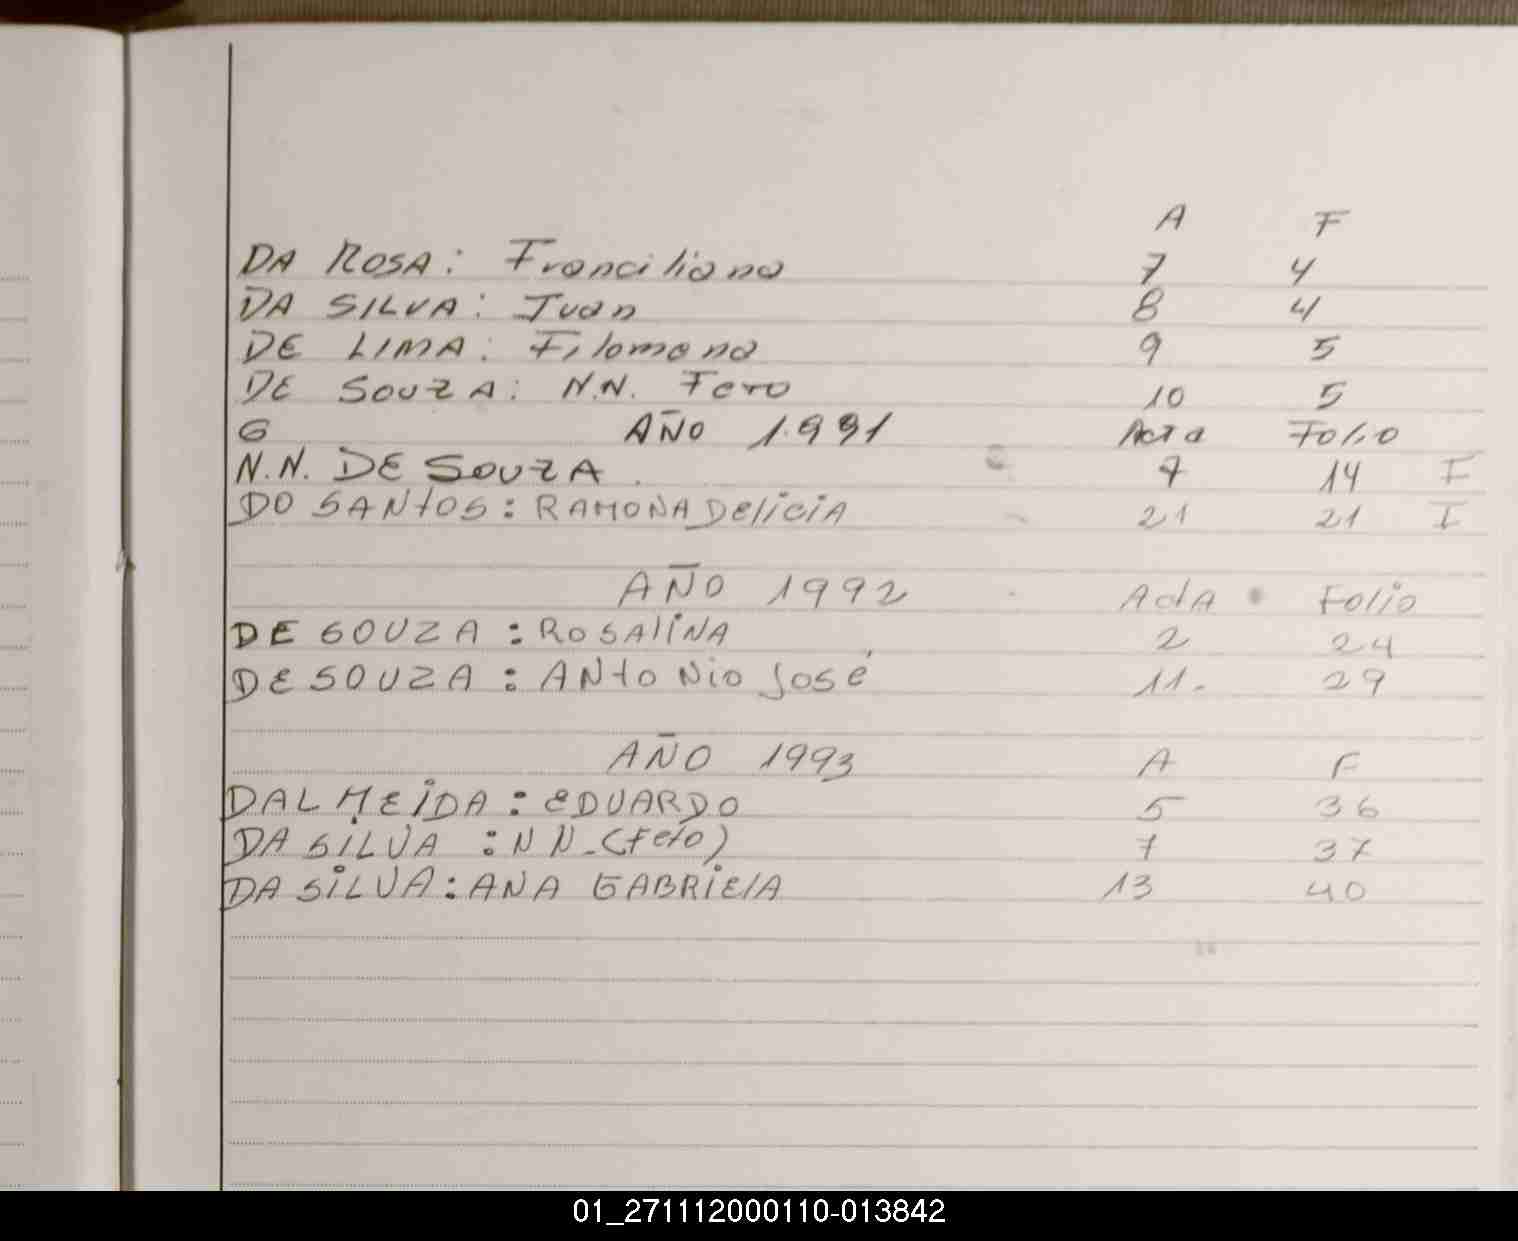 A F
DA ROSA: Franciliano 7 4
DA SILVA: Juan 8 4
DE LIMA: Filomena 9 5
DE SOUZA: N.N. Feto 10 5
G AÑO 1991 Acta Folio
N.N. DE SOUZA. 7 14 I
DO SANtOS: RAMONA DEliciA 21 21 I
AÑO 1992 ActA Folio
DE SOUZA: ROSAliNA 2 24
DE SOUZA: ANtoNio José 11. 29
AÑO 1993 A F
DALMEiDA: EDUARDO 5 36
DA SiLVA: NN-(Feto) 7 37
DA SiLVA: ANA GABRiElA 13 40
01_271112000110-013842